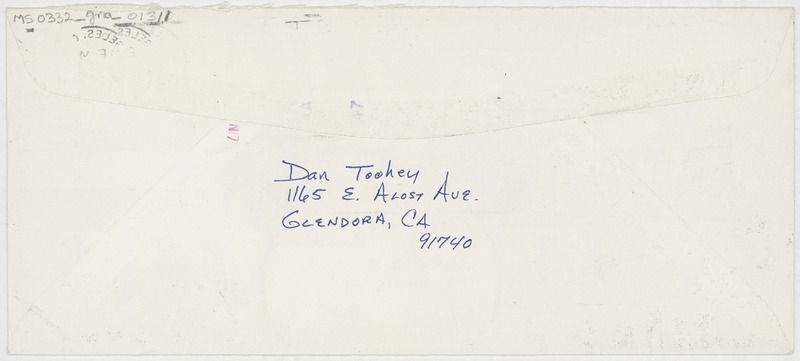 MS0332_gra_0131
Dan Toohey
1165 E. Alost Ave.
Glendora, CA
91740